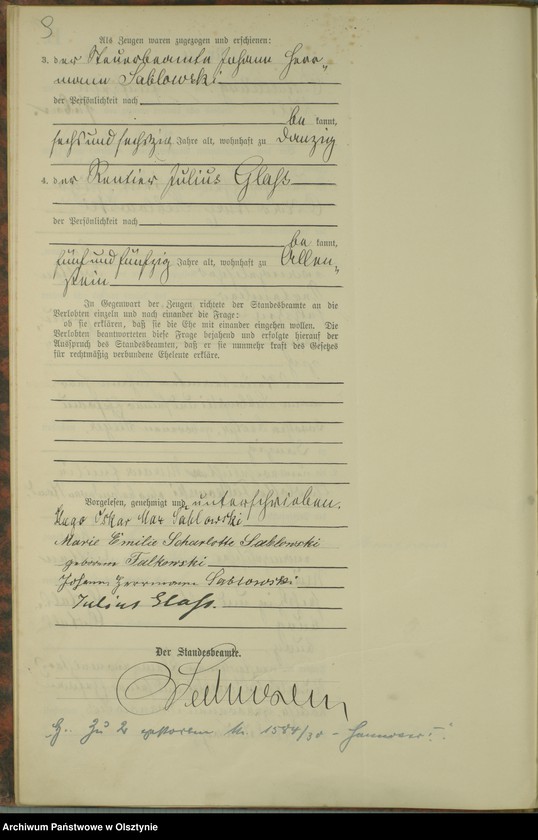 Als Zeugen waren zugezogen und erschienen:
3. der Steuerbeamte Johann Herr„
mann Sablowski
der Persönlichkeit nach
be kannt,
sechs und sechszig Jahre alt, wohnhaft zu Danzig
4. der Rentier Julius Glaß
der Persönlichkeit nach
be kannt,
fünf und fünfzig Jahre alt, wohnhaft zu Allen„
stein
In Gegenwart der Zeugen richtete der Standesbeamte an die
Verlobten einzeln und nach einander die Frage:
ob sie erklären, daß sie die Ehe mit einander eingehen wollen. Die
Verlobten beantworteten diese Frage bejahend und erfolgte hierauf der
Ausspruch des Standesbeamten, daß er sie nunmehr kraft des Gesetzes
für rechtmäßig verbundene Eheleute erkläre.
Vorgelesen, genehmigt und unterschrieben.
Hugo Oskar Max Sablowski
Marie Emilie Scharlotte Sablowski
geborene Falkowski
Johann Herrmann Sablowski
Julius Glaß.
Der Standesbeamte.
Zu 2 Nr. 1584/30 - Hannover I.
Archiwum Państwowe w Olsztynie